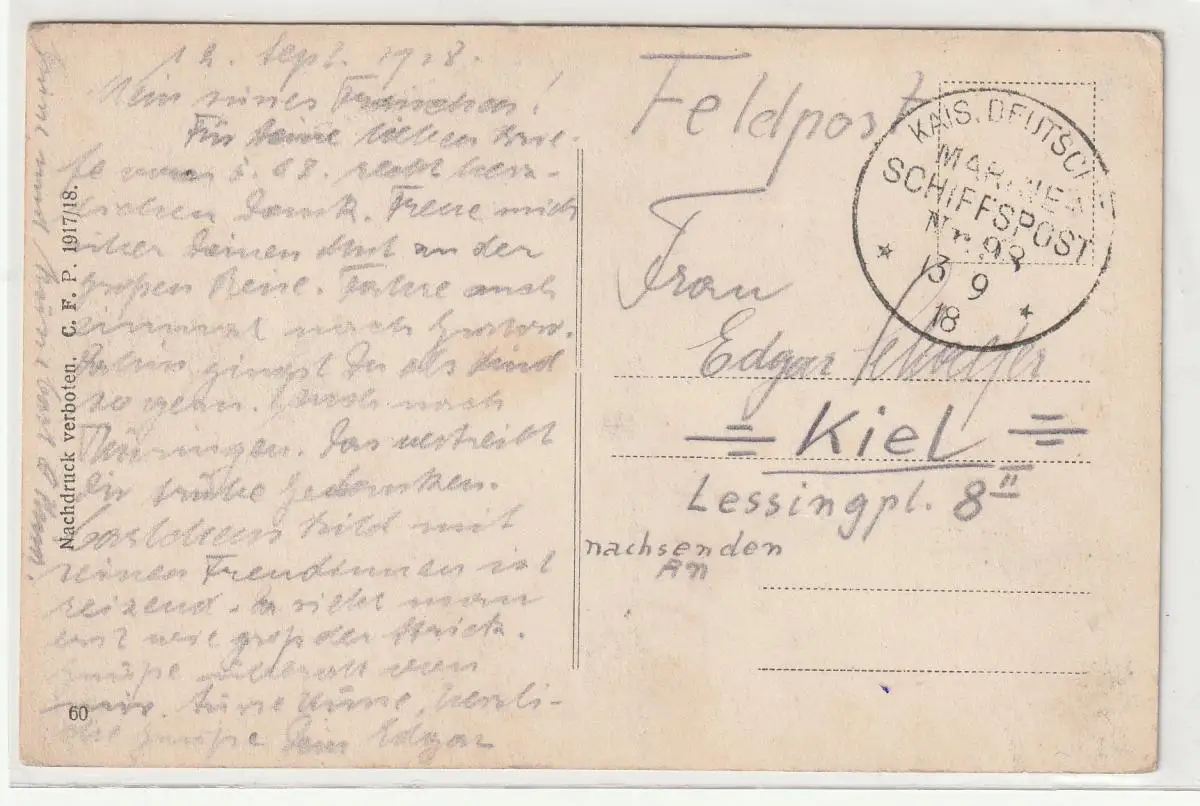 12. Sept. 1918.
Mein süsses Fränschen!
Für Deine lieben Brie-
fe vom 3. 8. recht herz-
lichen Dank. Freue mich
über Deinen Mut an der
großen Reise. Fahre auch
einmal nach
Dahin gingst Du als Kind
so gern. Auch nach
Thüringen. Das vertreibt
Dir trübe Gedanken.
Bild mit
seinen Freundinnen ist
reizend. Da sieht man
erst wie groß der
Grüße von
mir. herzli-
che Grüße Dein Edgar
Nachdruck verboten. C. F. P. 1917/18.
60
Feldpost
KAIS. DEUTSCHE
MARINE-
SCHIFFSPOST
Nr. 98
13 9
18
Frau
Edgar
= Kiel =
Lessingpl. 8 II
nachsenden
An